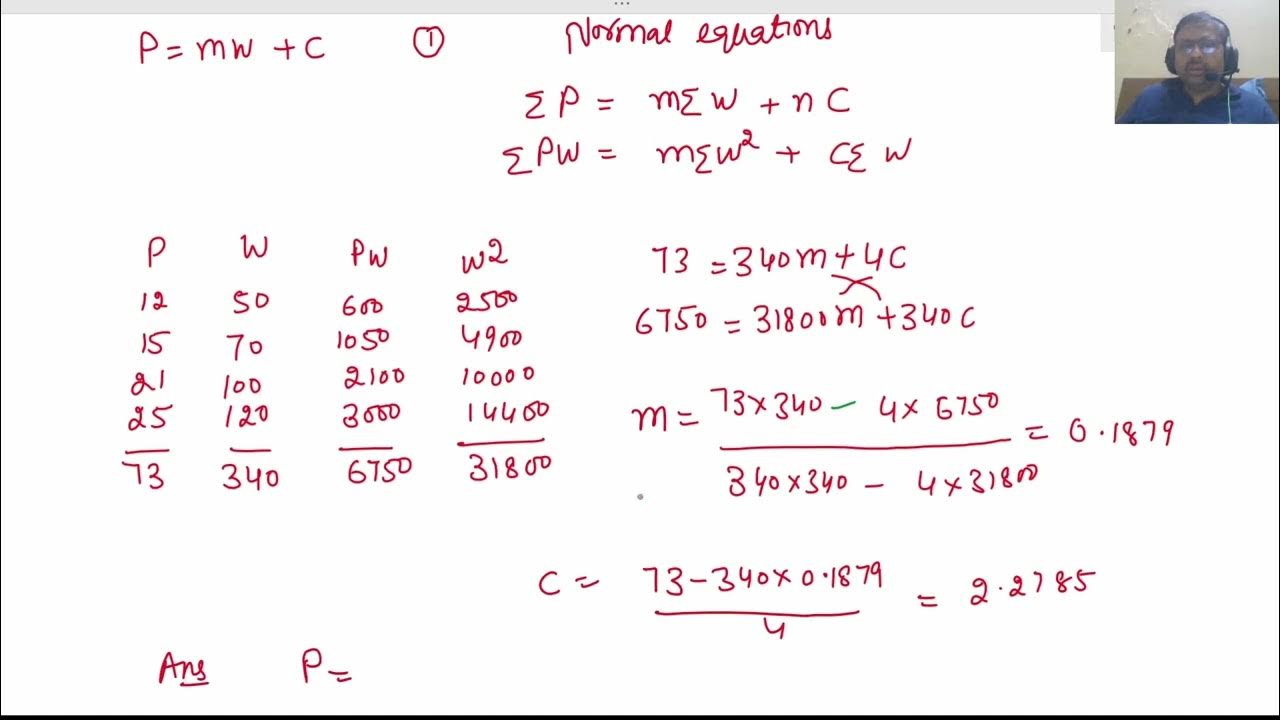 P = mW + C ①
Normal equations
ΣP = mΣW + nC
ΣPW = mΣW² + CΣW
P W PW W2
12 50 600 2500
15 70 1050 4900
21 100 2100 10000
25 120 3000 14400
73 340 6750 31800
73 = 340m + 4C
6750 = 31800m + 340C
m = (73×340 - 4×6750) / (340×340 - 4×31800) = 0.1879
C = (73 - 340×0.1879) / 4 = 2.2785
Ans P =